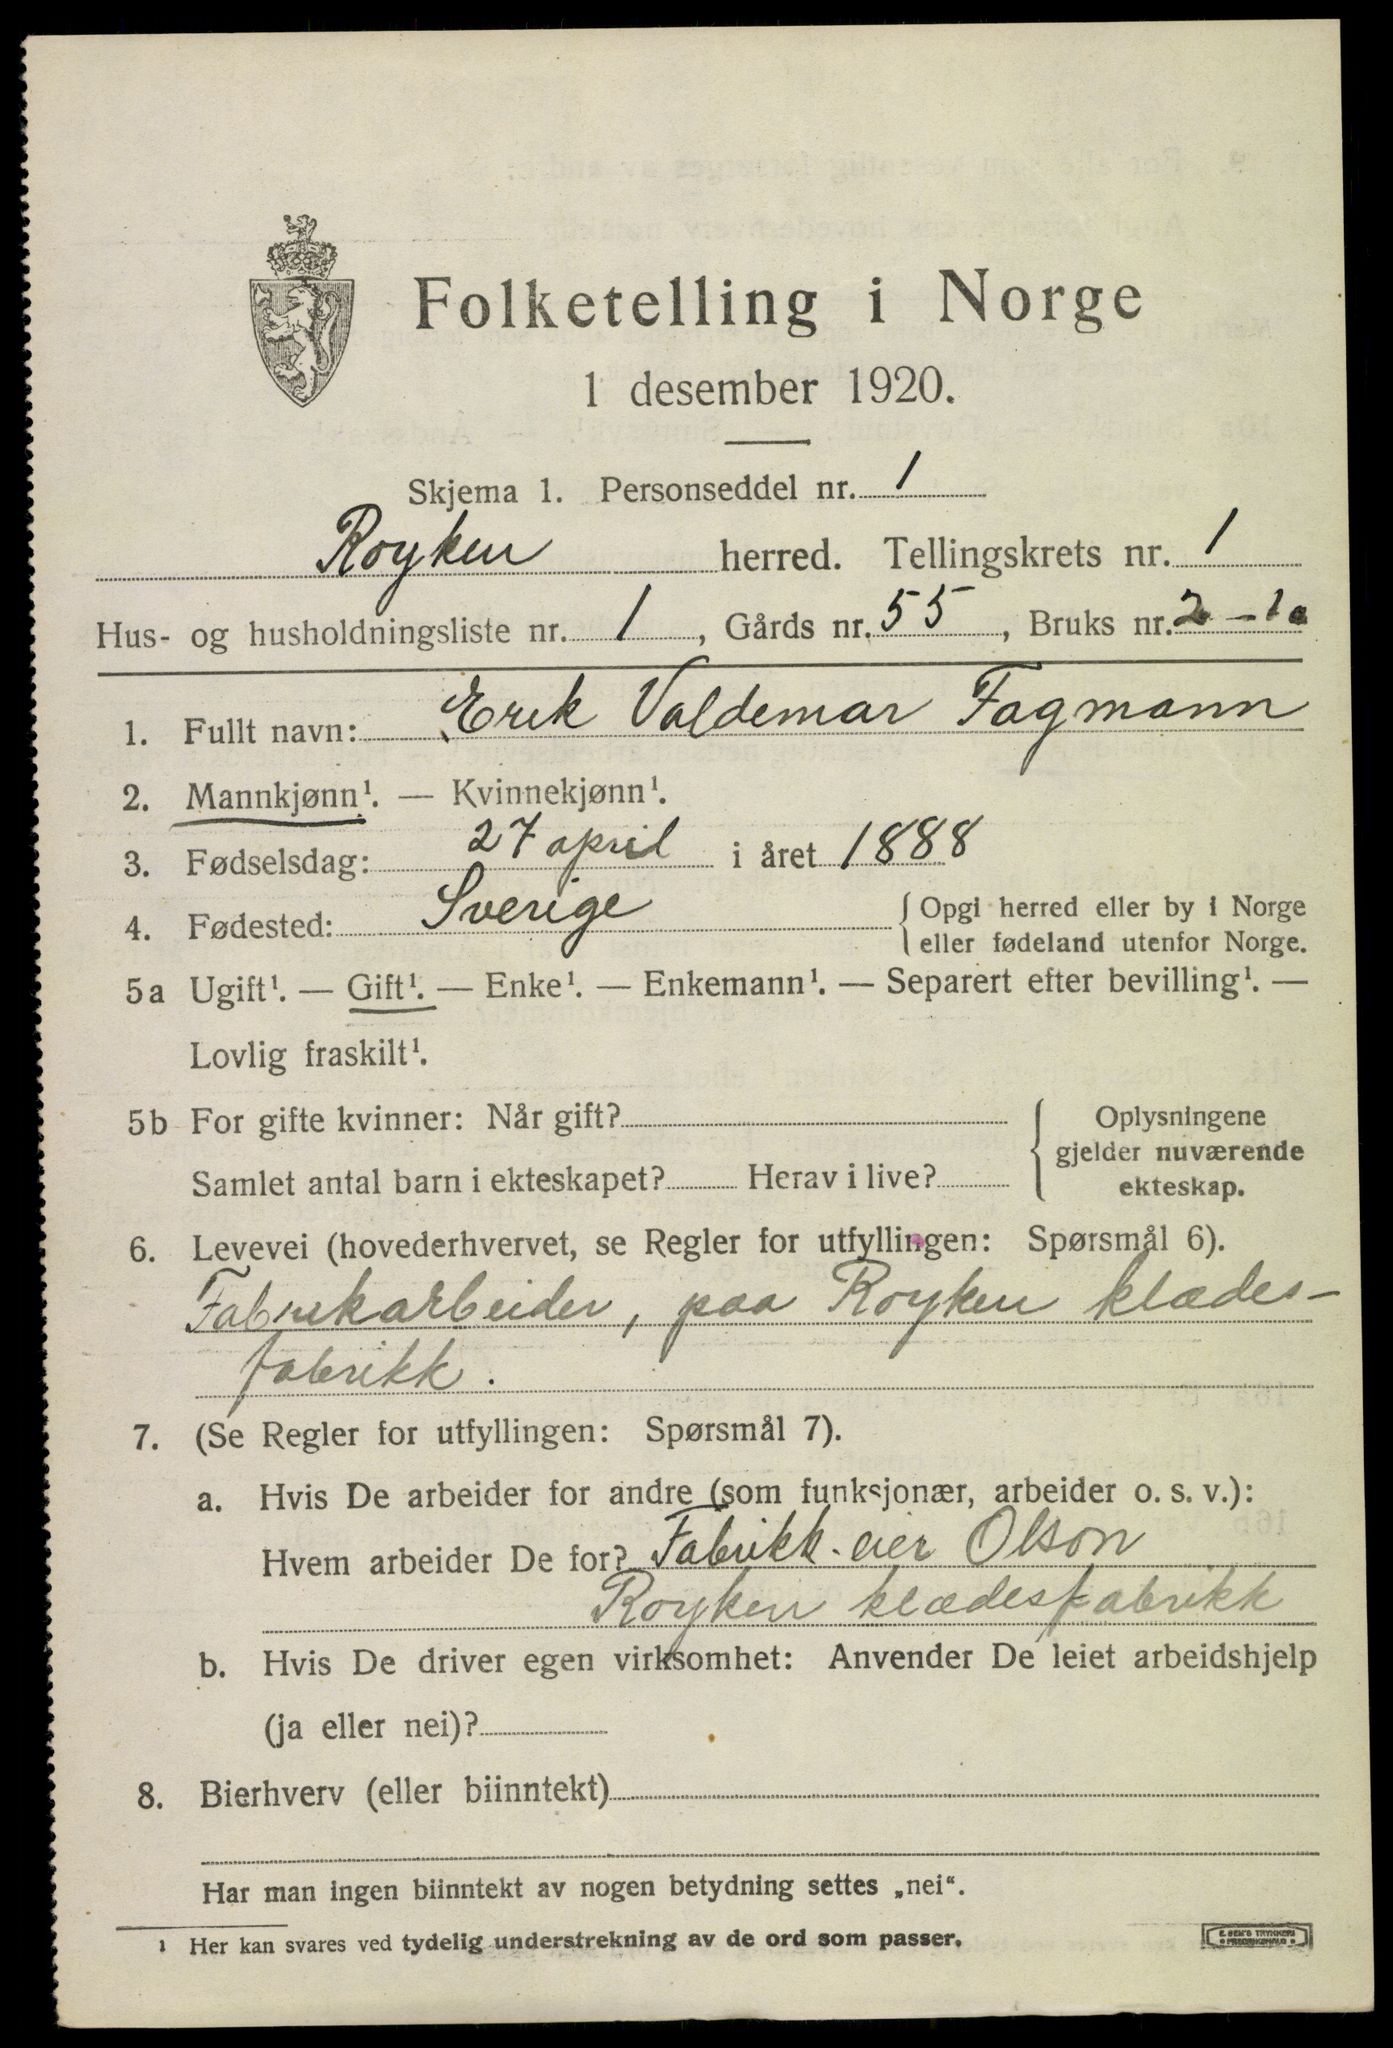 Folketelling i Norge
1 desember 1920.
Skjema 1. Personseddel nr. 1
Royken herred. Tellingskrets nr. 1
Hus- og husholdningsliste nr. 1, Gårds nr. 55, Bruks nr. 2-10
1. Fullt navn: Erik Valdemar Fagmann
2. Mannkjønn¹. — Kvinnekjønn¹.
3. Fødselsdag: 27 april i året 1888
4. Fødested: Sverige { Opgi herred eller by i Norge
eller fødeland utenfor Norge.
5a Ugift¹. — Gift¹. — Enke¹. — Enkemann¹. — Separert efter bevilling¹. —
Lovlig fraskilt¹.
5b For gifte kvinner: Når gift? { Oplysningene
gjelder nuværende
Samlet antal barn i ekteskapet? Herav i live? ekteskap.
6. Levevei (hovederhvervet, se Regler for utfyllingen: Spørsmål 6).
Fabrikarbeider, paa Royken klædes-
fabrikk.
7. (Se Regler for utfyllingen: Spørsmål 7).
a. Hvis De arbeider for andre (som funksjonær, arbeider o. s. v.):
Hvem arbeider De for? Fabrikk-eier Olson
Royken klædesfabrikk
b. Hvis De driver egen virksomhet: Anvender De leiet arbeidshjelp
(ja eller nei)?
8. Bierhverv (eller biinntekt)
Har man ingen biinntekt av nogen betydning settes „nei“.
¹ Her kan svares ved tydelig understrekning av de ord som passer.